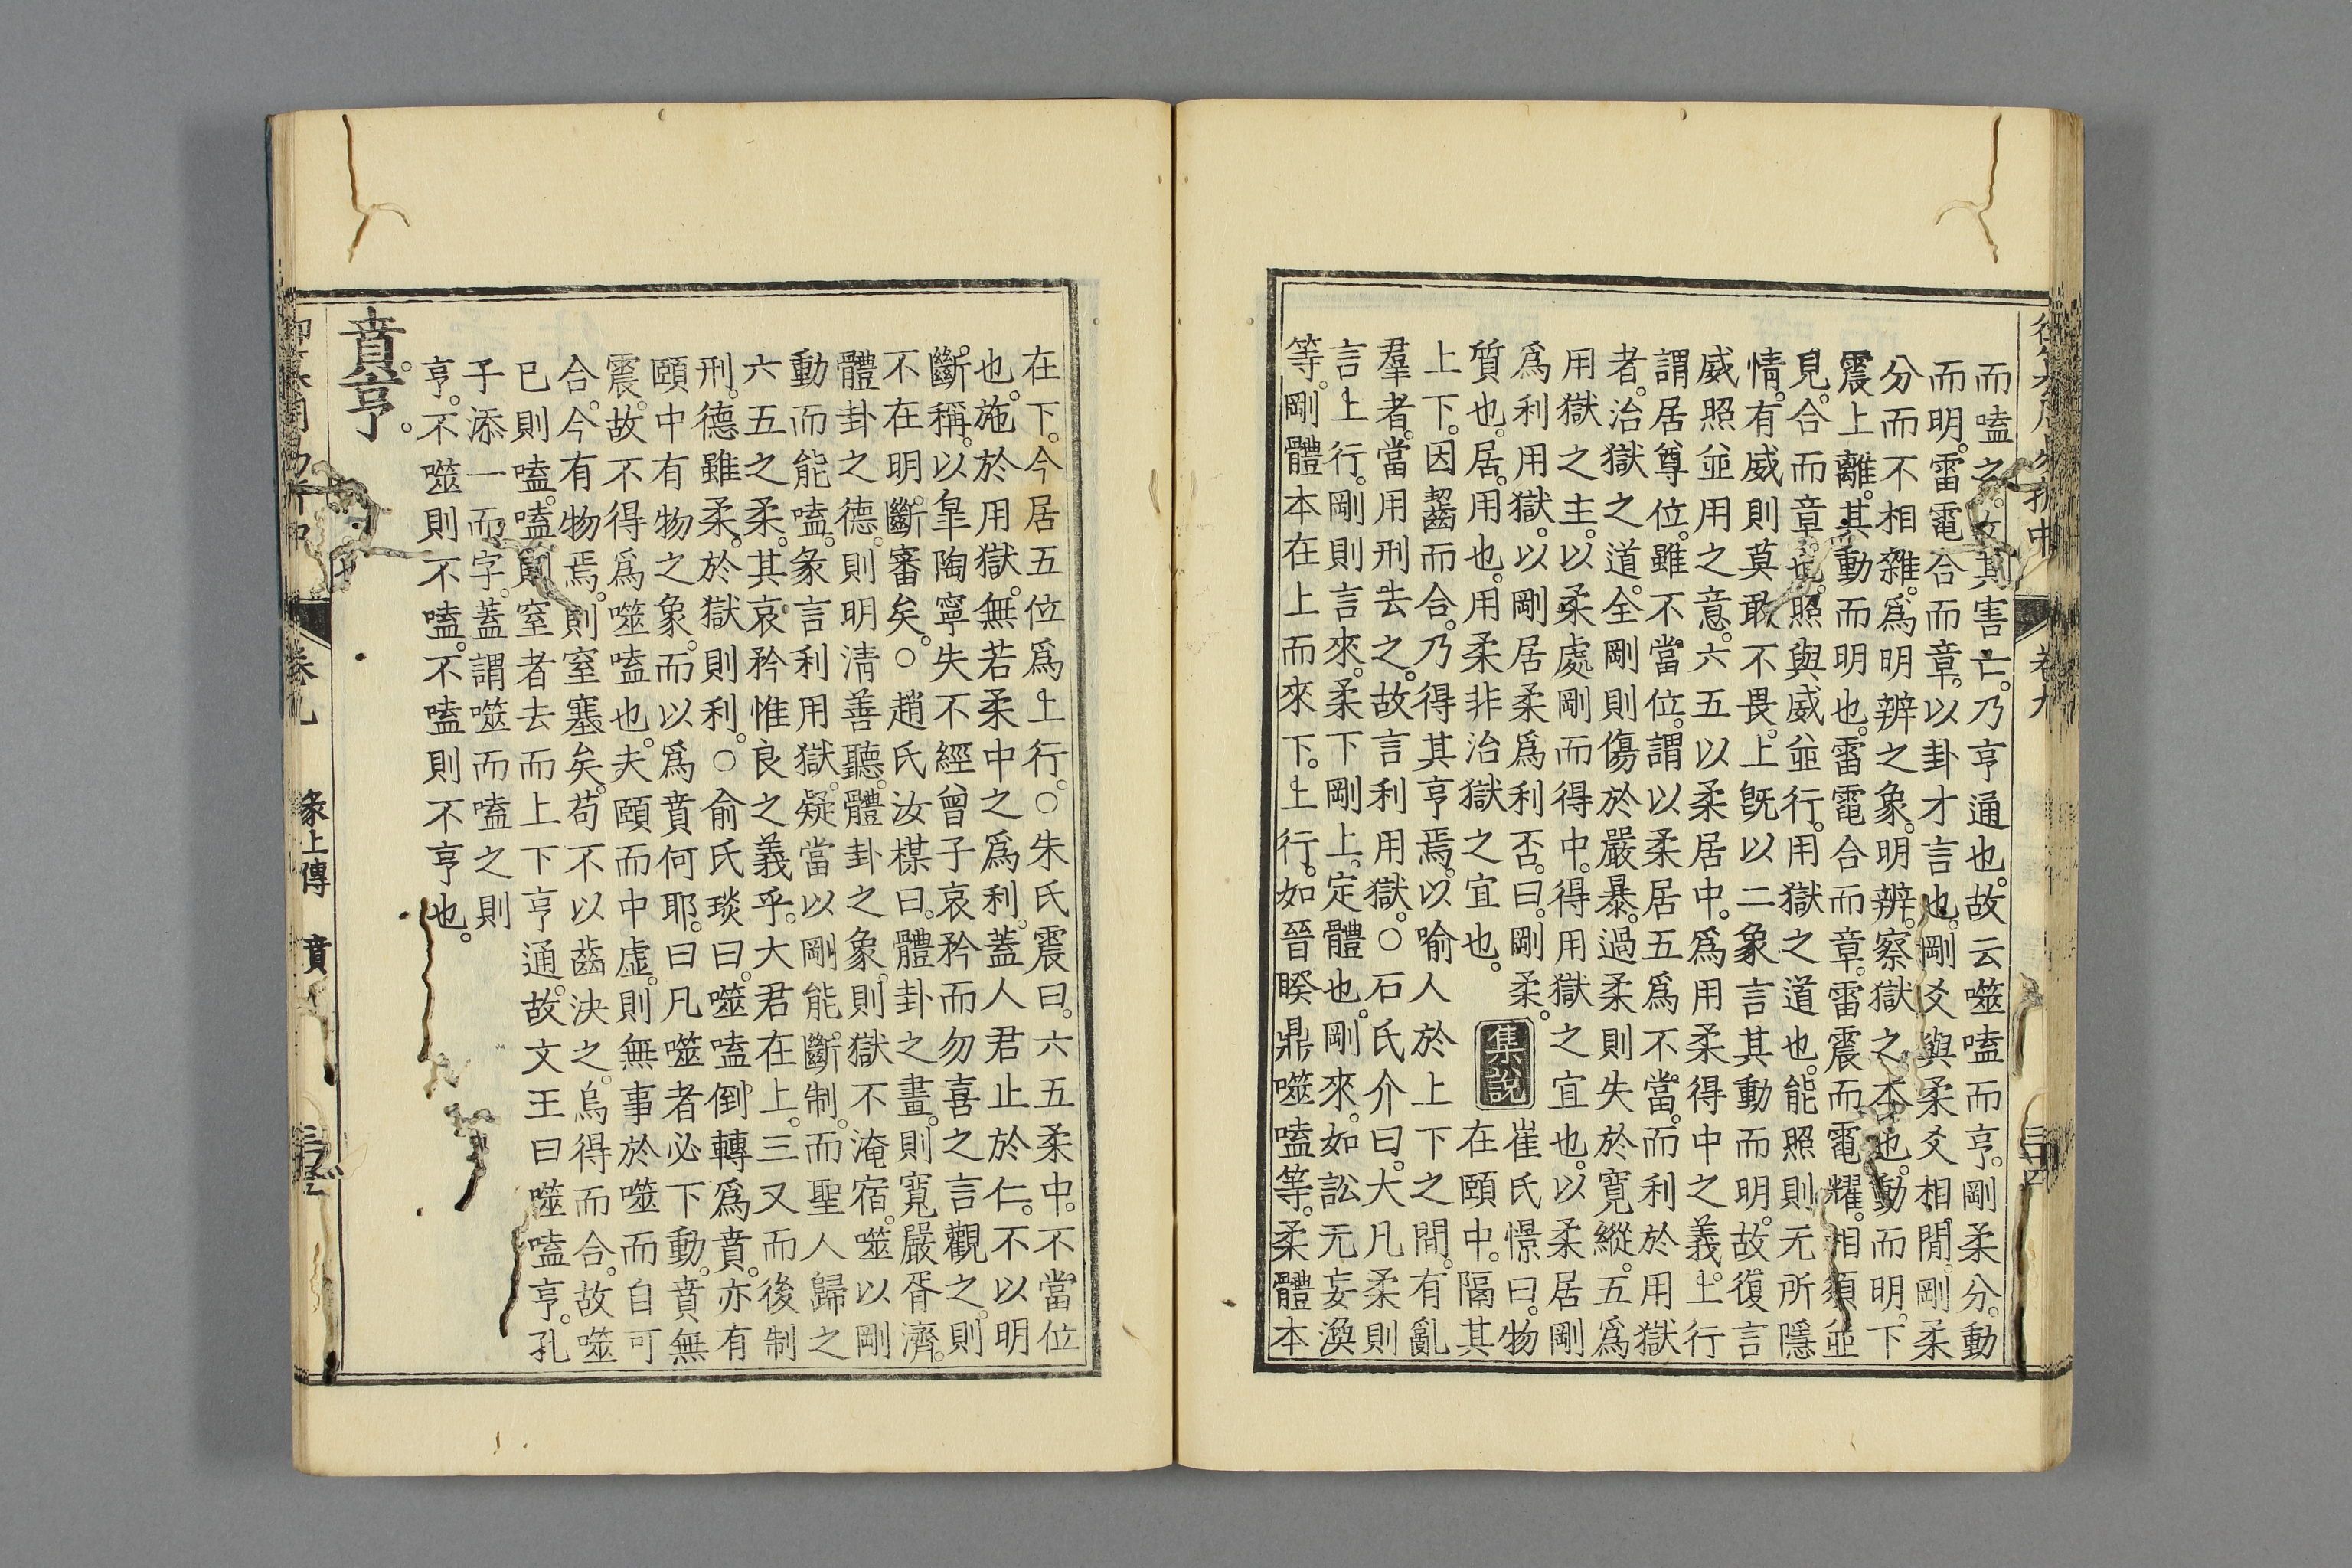 卷九
而嗑之。則其害亡。乃亨通也。故云噬嗑而亨。剛柔分。動
而明。雷電合而章。以卦才言也。剛爻與柔爻相閒。剛柔
分而不相雜。爲明辨之象。明辨。察獄之本也。動而明。下
震上離。其動而明也。雷電合而章。雷震而電耀。相須並
見。合而章也。照與威並行。用獄之道也。能照則无所隱
情。有威則莫敢不畏。上旣以二象言其動而明。故復言
威照並用之意。六五以柔居中。爲用柔得中之義。上行
謂居尊位。雖不當位。謂以柔居五爲不當。而利於用獄
者。治獄之道。全剛則傷於嚴暴。過柔則失於寬縱。五爲
用獄之主。以柔處剛而得中。得用獄之宜也。以柔居剛
爲利用獄。以剛居柔爲利否。曰。剛柔。
質也。居。用也。用柔非治獄之宜也。
集說
崔氏憬曰。物
在頤中。隔其
上下。因齧而合。乃得其亨焉。以喻人於上下之閒。有亂
羣者。當用刑去之。故言利用獄。○石氏介曰。大凡柔則
言上行。剛則言來。柔下剛上。定體也。剛來。如訟无妄渙
等。剛體本在上而來下。上行。如晉睽鼎噬嗑等。柔體本
在下。今居五位爲上行。○朱氏震曰。六五柔中。不當位
也。施於用獄。無若柔中之爲利。蓋人君止於仁。不以明
斷稱。以臯陶寧失不經曾子哀矜而勿喜之言觀之。則
不在明斷審矣。○趙氏汝楳曰。體卦之畫。則寬嚴胥濟。
體卦之德。則明淸善聽。體卦之象。則獄不淹宿。噬以剛
動而能嗑。彖言利用獄。疑當以剛能斷制。而聖人歸之
六五之柔。其哀矜惟良之義乎。大君在上。三又而後制
刑。德雖柔。於獄則利。○俞氏琰曰。噬嗑倒轉爲賁。亦有
頤中有物之象。而以爲賁何耶。曰凡噬者必下動。賁無
震。故不得爲噬嗑也。夫頤而中虛。則無事於噬而自可
合。今有物焉。則窒塞矣。苟不以齒決之。烏得而合。故噬
已則嗑。嗑則窒者去而上下亨通。故文王曰噬嗑亨。孔
子添一而字。蓋謂噬而嗑之則
亨。不噬則不嗑。不嗑則不亨也。
賁。亨。
卷九 彖上傳 賁